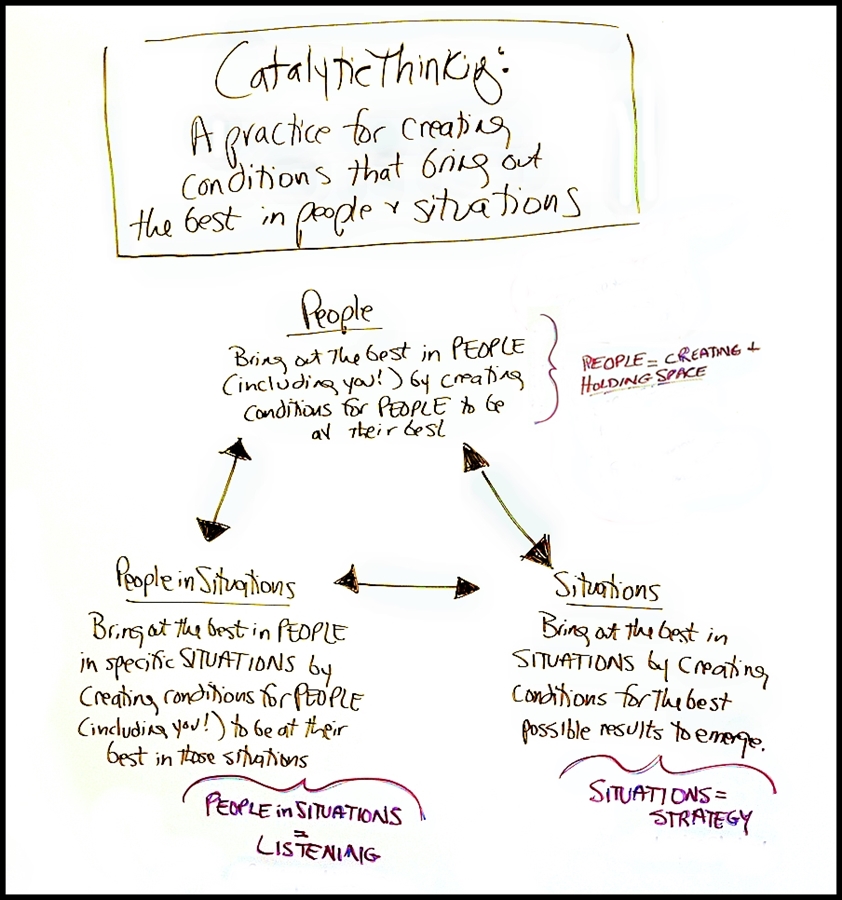 Catalytic Thinking:
A practice for creating
conditions that bring out
the best in people + situations
People
Bring out the best in PEOPLE
(including you!) by creating
conditions for PEOPLE to be
at their best
PEOPLE = CREATING +
HOLDING SPACE
People in Situations
Bring out the best in PEOPLE
in specific SITUATIONS by
creating conditions for PEOPLE
(including you!) to be at their
best in those situations
PEOPLE in SITUATIONS
=
LISTENING
Situations
Bring out the best in
SITUATIONS by creating
conditions for the best
possible results to emerge.
SITUATIONS =
STRATEGY